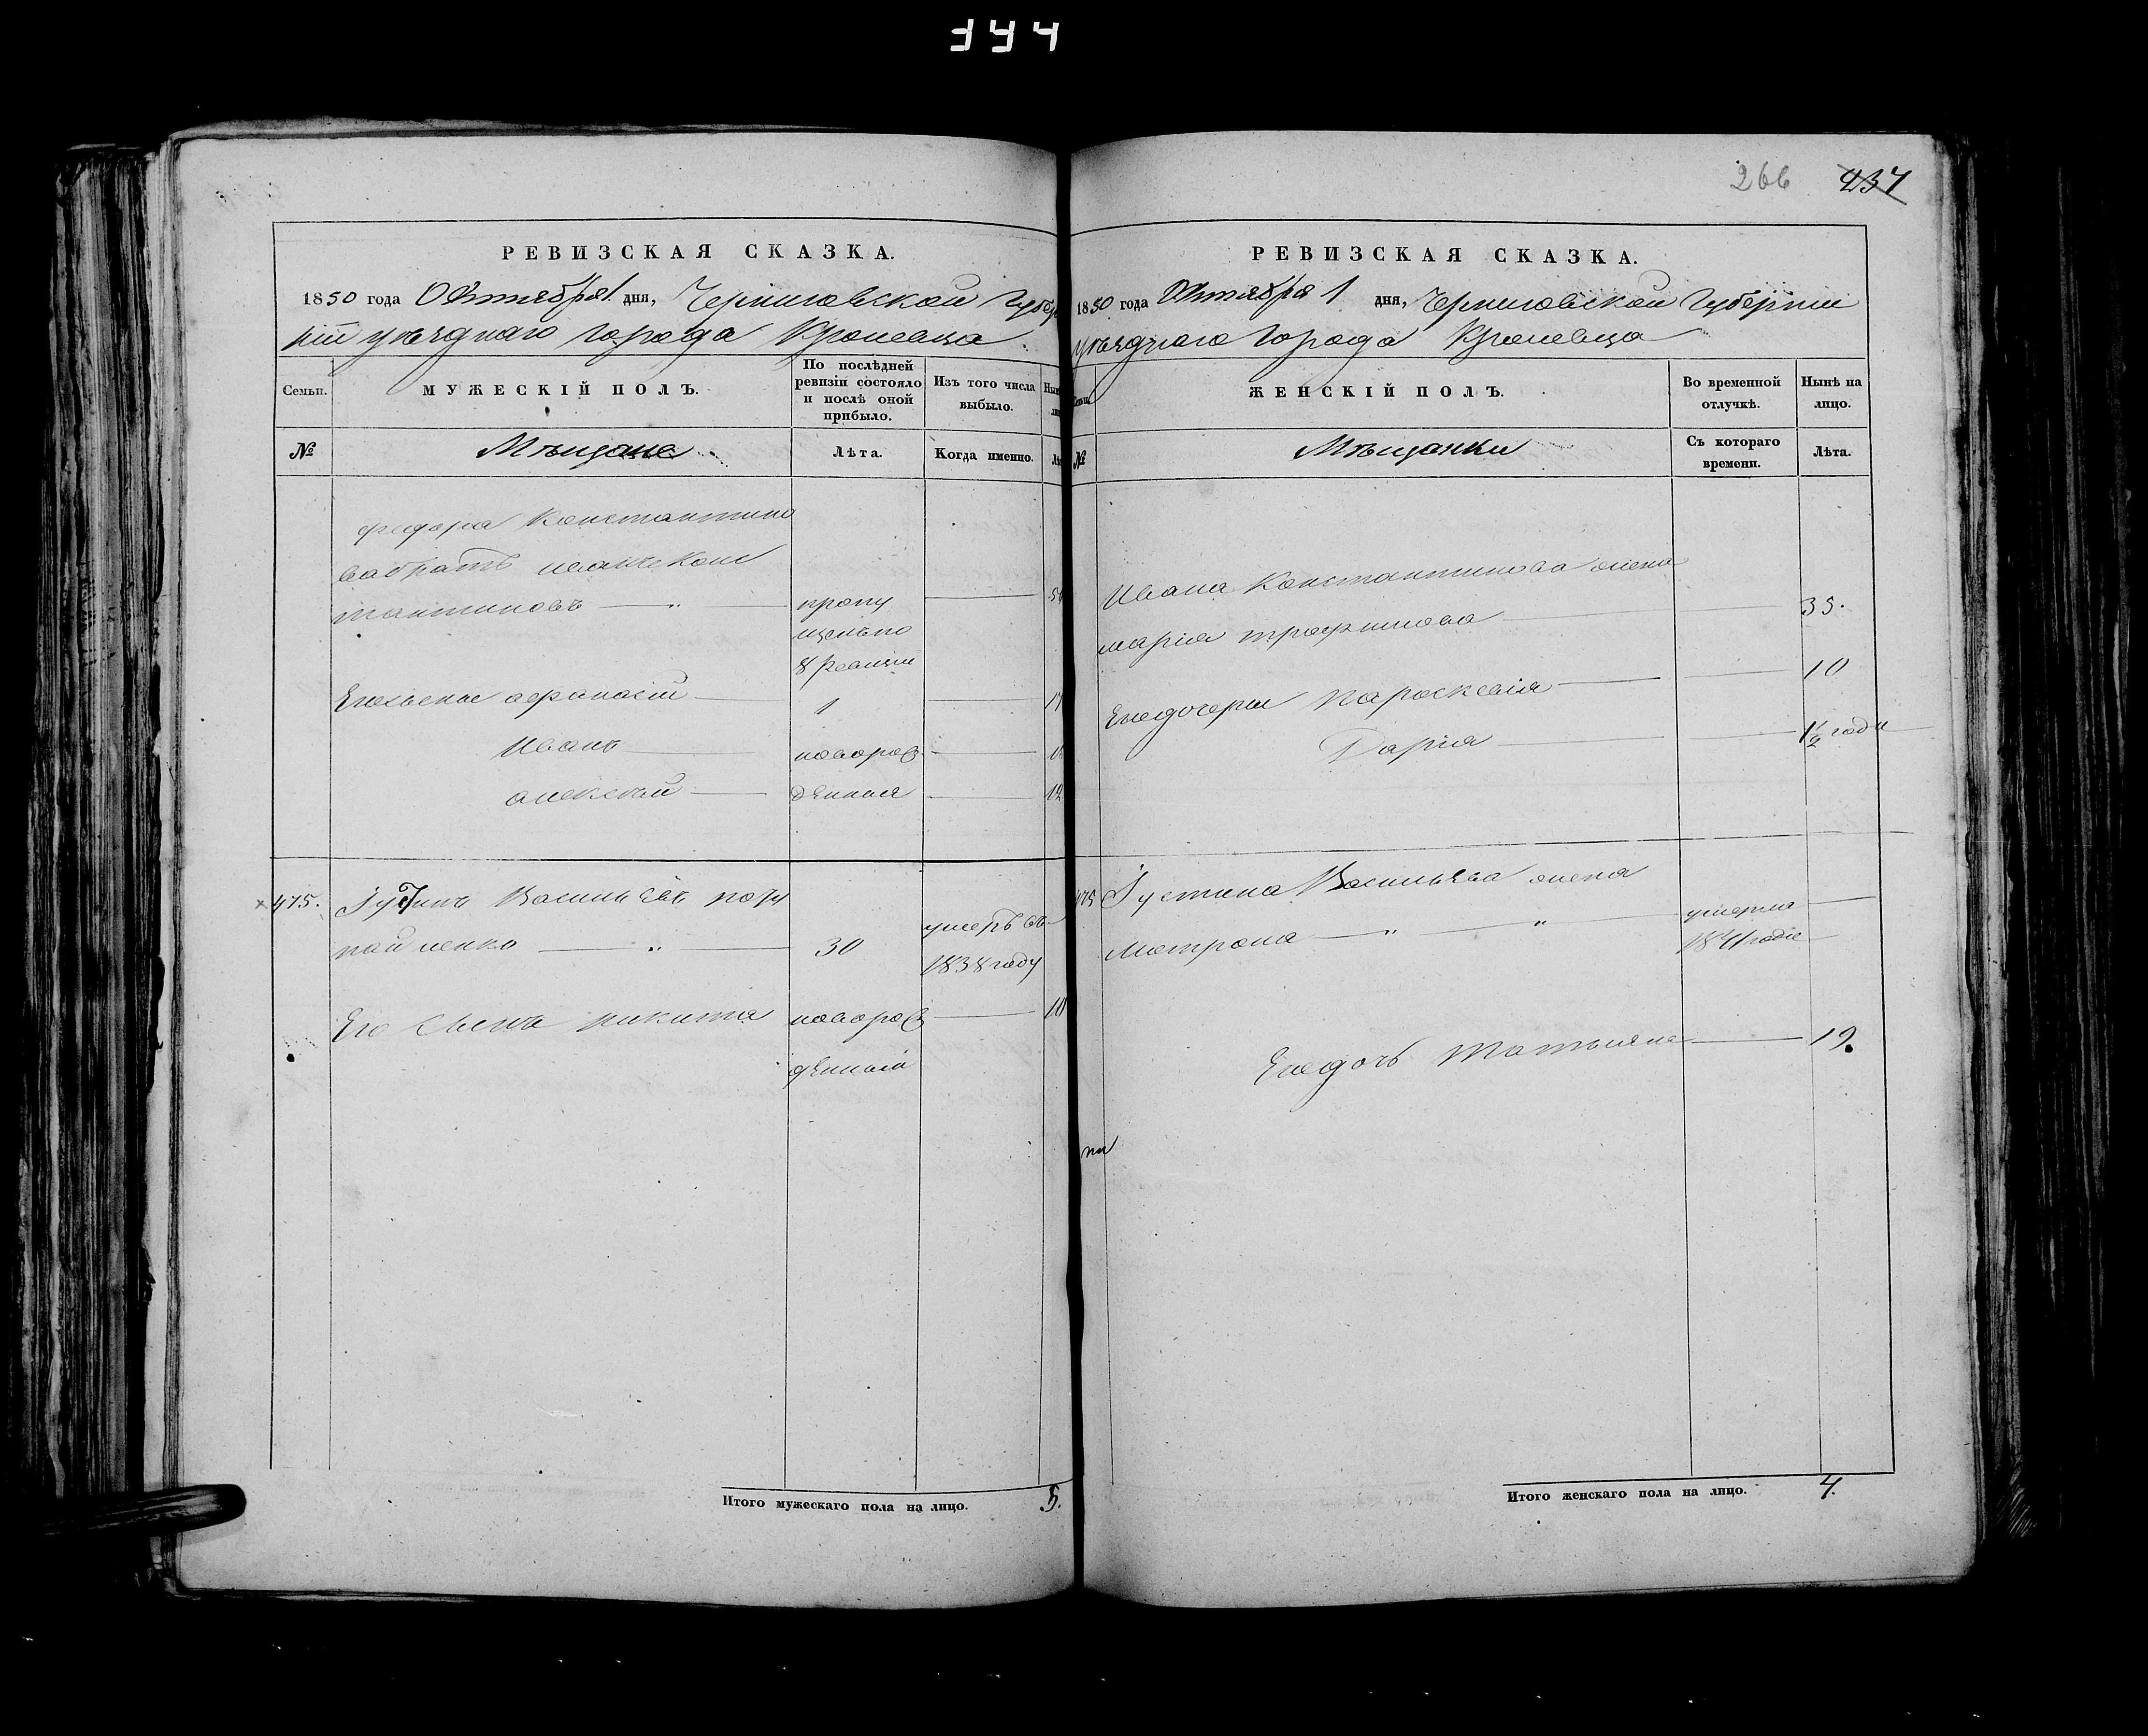 266 437
РЕВИЗСКАЯ СКАЗКА.
1850 года Октября 1 дня, Черниговской Губер
ніи уѣзднаго города Кролевца
Семьи.
МУЖЕСКІЙ ПОЛЪ.
По послѣдней ревизіи состояло и послѣ оной прибыло.
Изъ того числа выбыло.
№
Мѣщане
Лѣта.
Когда именно.
федора Константино
ва братъ иванъ Конс
тантиновъ — „ — пропу
щенъ по
8 ревизіи
Его сыновья афанасій — 1 —
Иванъ — новорож —
алексѣй — денныя — 12
475. Іустинъ Васильевъ
30 умеръ въ
1838 году
Его сынъ никита новорож —
денный
Итого мужескаго пола на лицо. 5.
РЕВИЗСКАЯ СКАЗКА.
1850 года Октября 1 дня, Черниговской Губерніи
уѣзднаго города Кролевца
ЖЕНСКІЙ ПОЛЪ.
Во временной отлучкѣ.
Нынѣ на лицо.
№
Мѣщанки
Съ котораго времени.
Лѣта.
Ивана Константинова жена
марія трофимова — 35.
Его дочери Параскевія — 10
Дарія — 1½ года
475 Іустина Васильева жена
Матрона — „ — „ — умерла
Его дочь татьяна — 19.
Итого женскаго пола на лицо. 4.